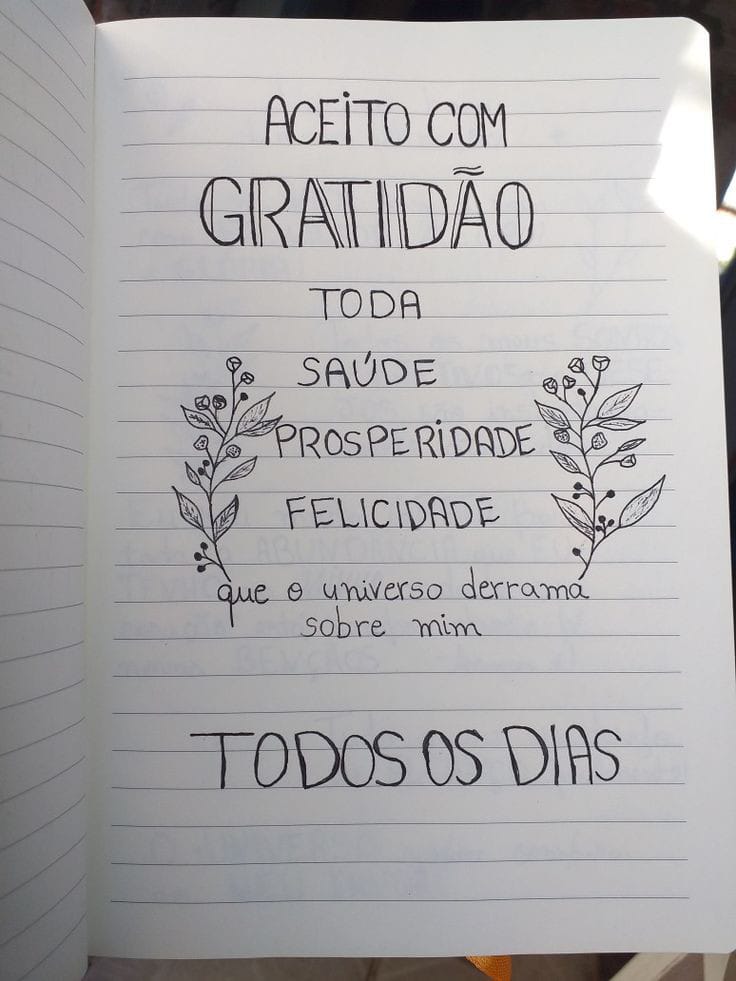 ACEITO COM
GRATIDÃO
TODA
SAÚDE
PROSPERIDADE
FELICIDADE
que o universo derrama
sobre mim
TODOS OS DIAS